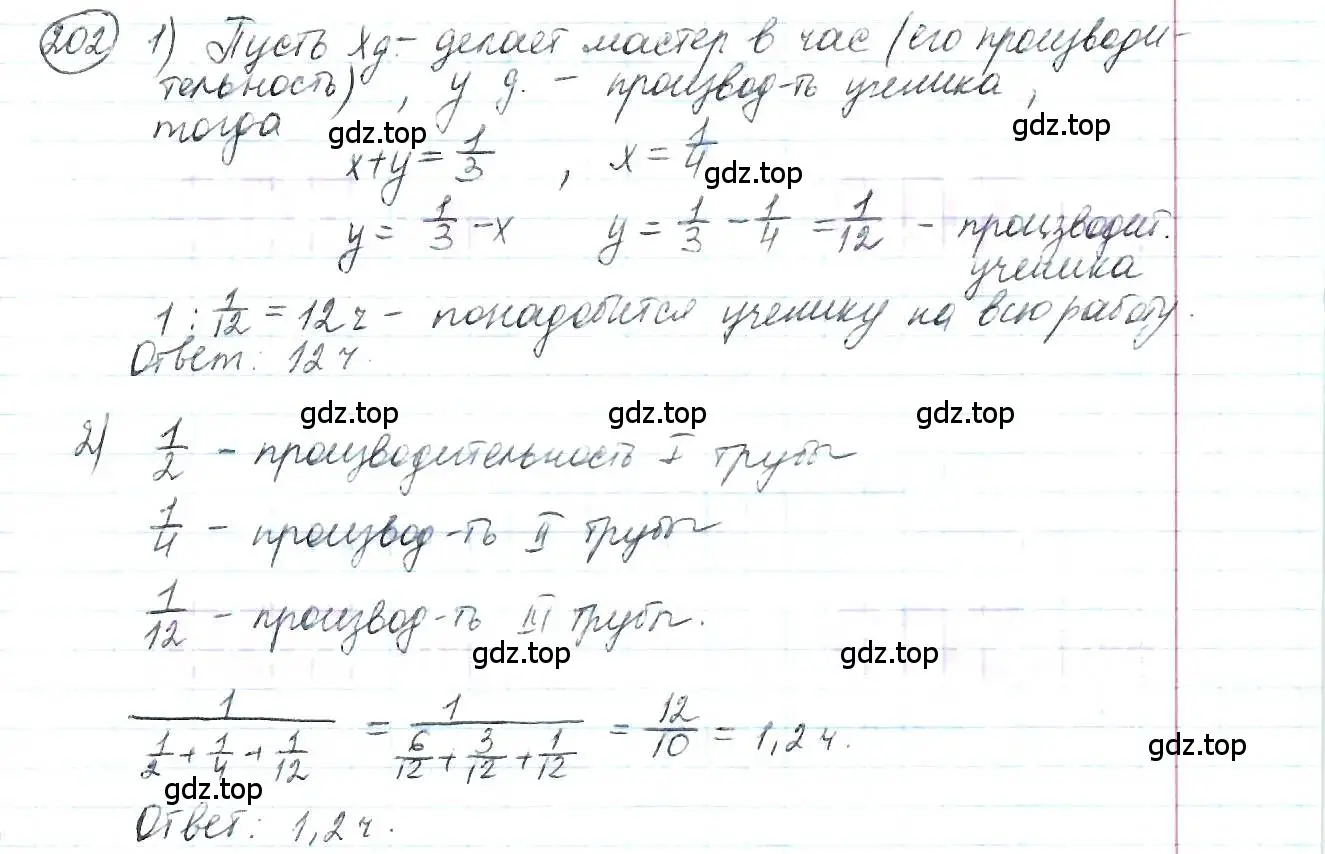 202 1) Пусть x д. - делает мастер в час (его производи-
тельность), y д. - производ-ть ученика,
тогда gdz.top gdz.top
x+y = 1/3 , x = 1/4 gdz.top
y = 1/3 - x y = 1/3 - 1/4 = 1/12 - производит.
ученика
1 : 1/12 = 12 ч - понадобится ученику на всю работу.
Ответ: 12 ч.
gdz.top gdz.top gdz.top
2) 1/2 - производительность I трубы
1/4 - производ-ть II трубы
1/12 - производ-ть III трубы.
gdz.top gdz.top
1/(1/2 + 1/4 + 1/12) = 1/(6/12 + 3/12 + 1/12) = 12/10 = 1,2 ч.
gdz.top gdz.top
Ответ: 1,2 ч.